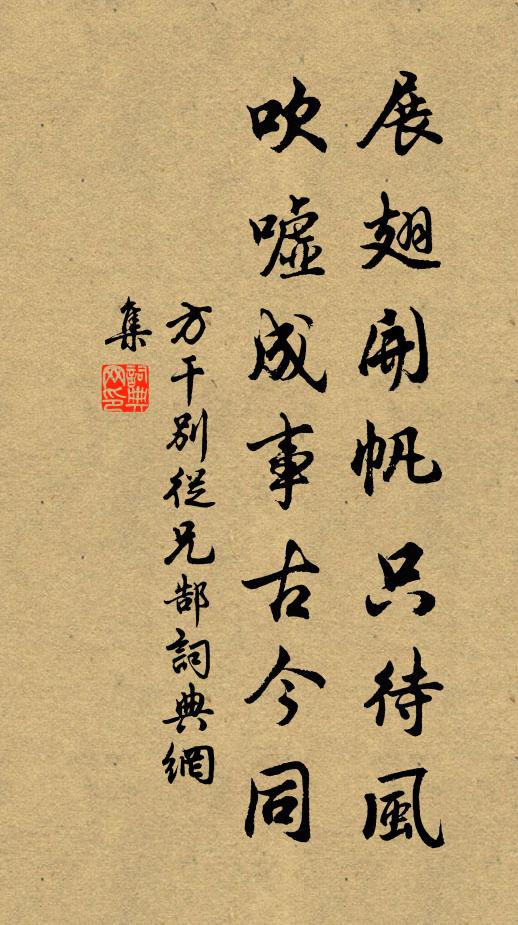 展翅開帆只待風
吹噓成事古今同
方干別從兄郜詞典網
集
詞典網印